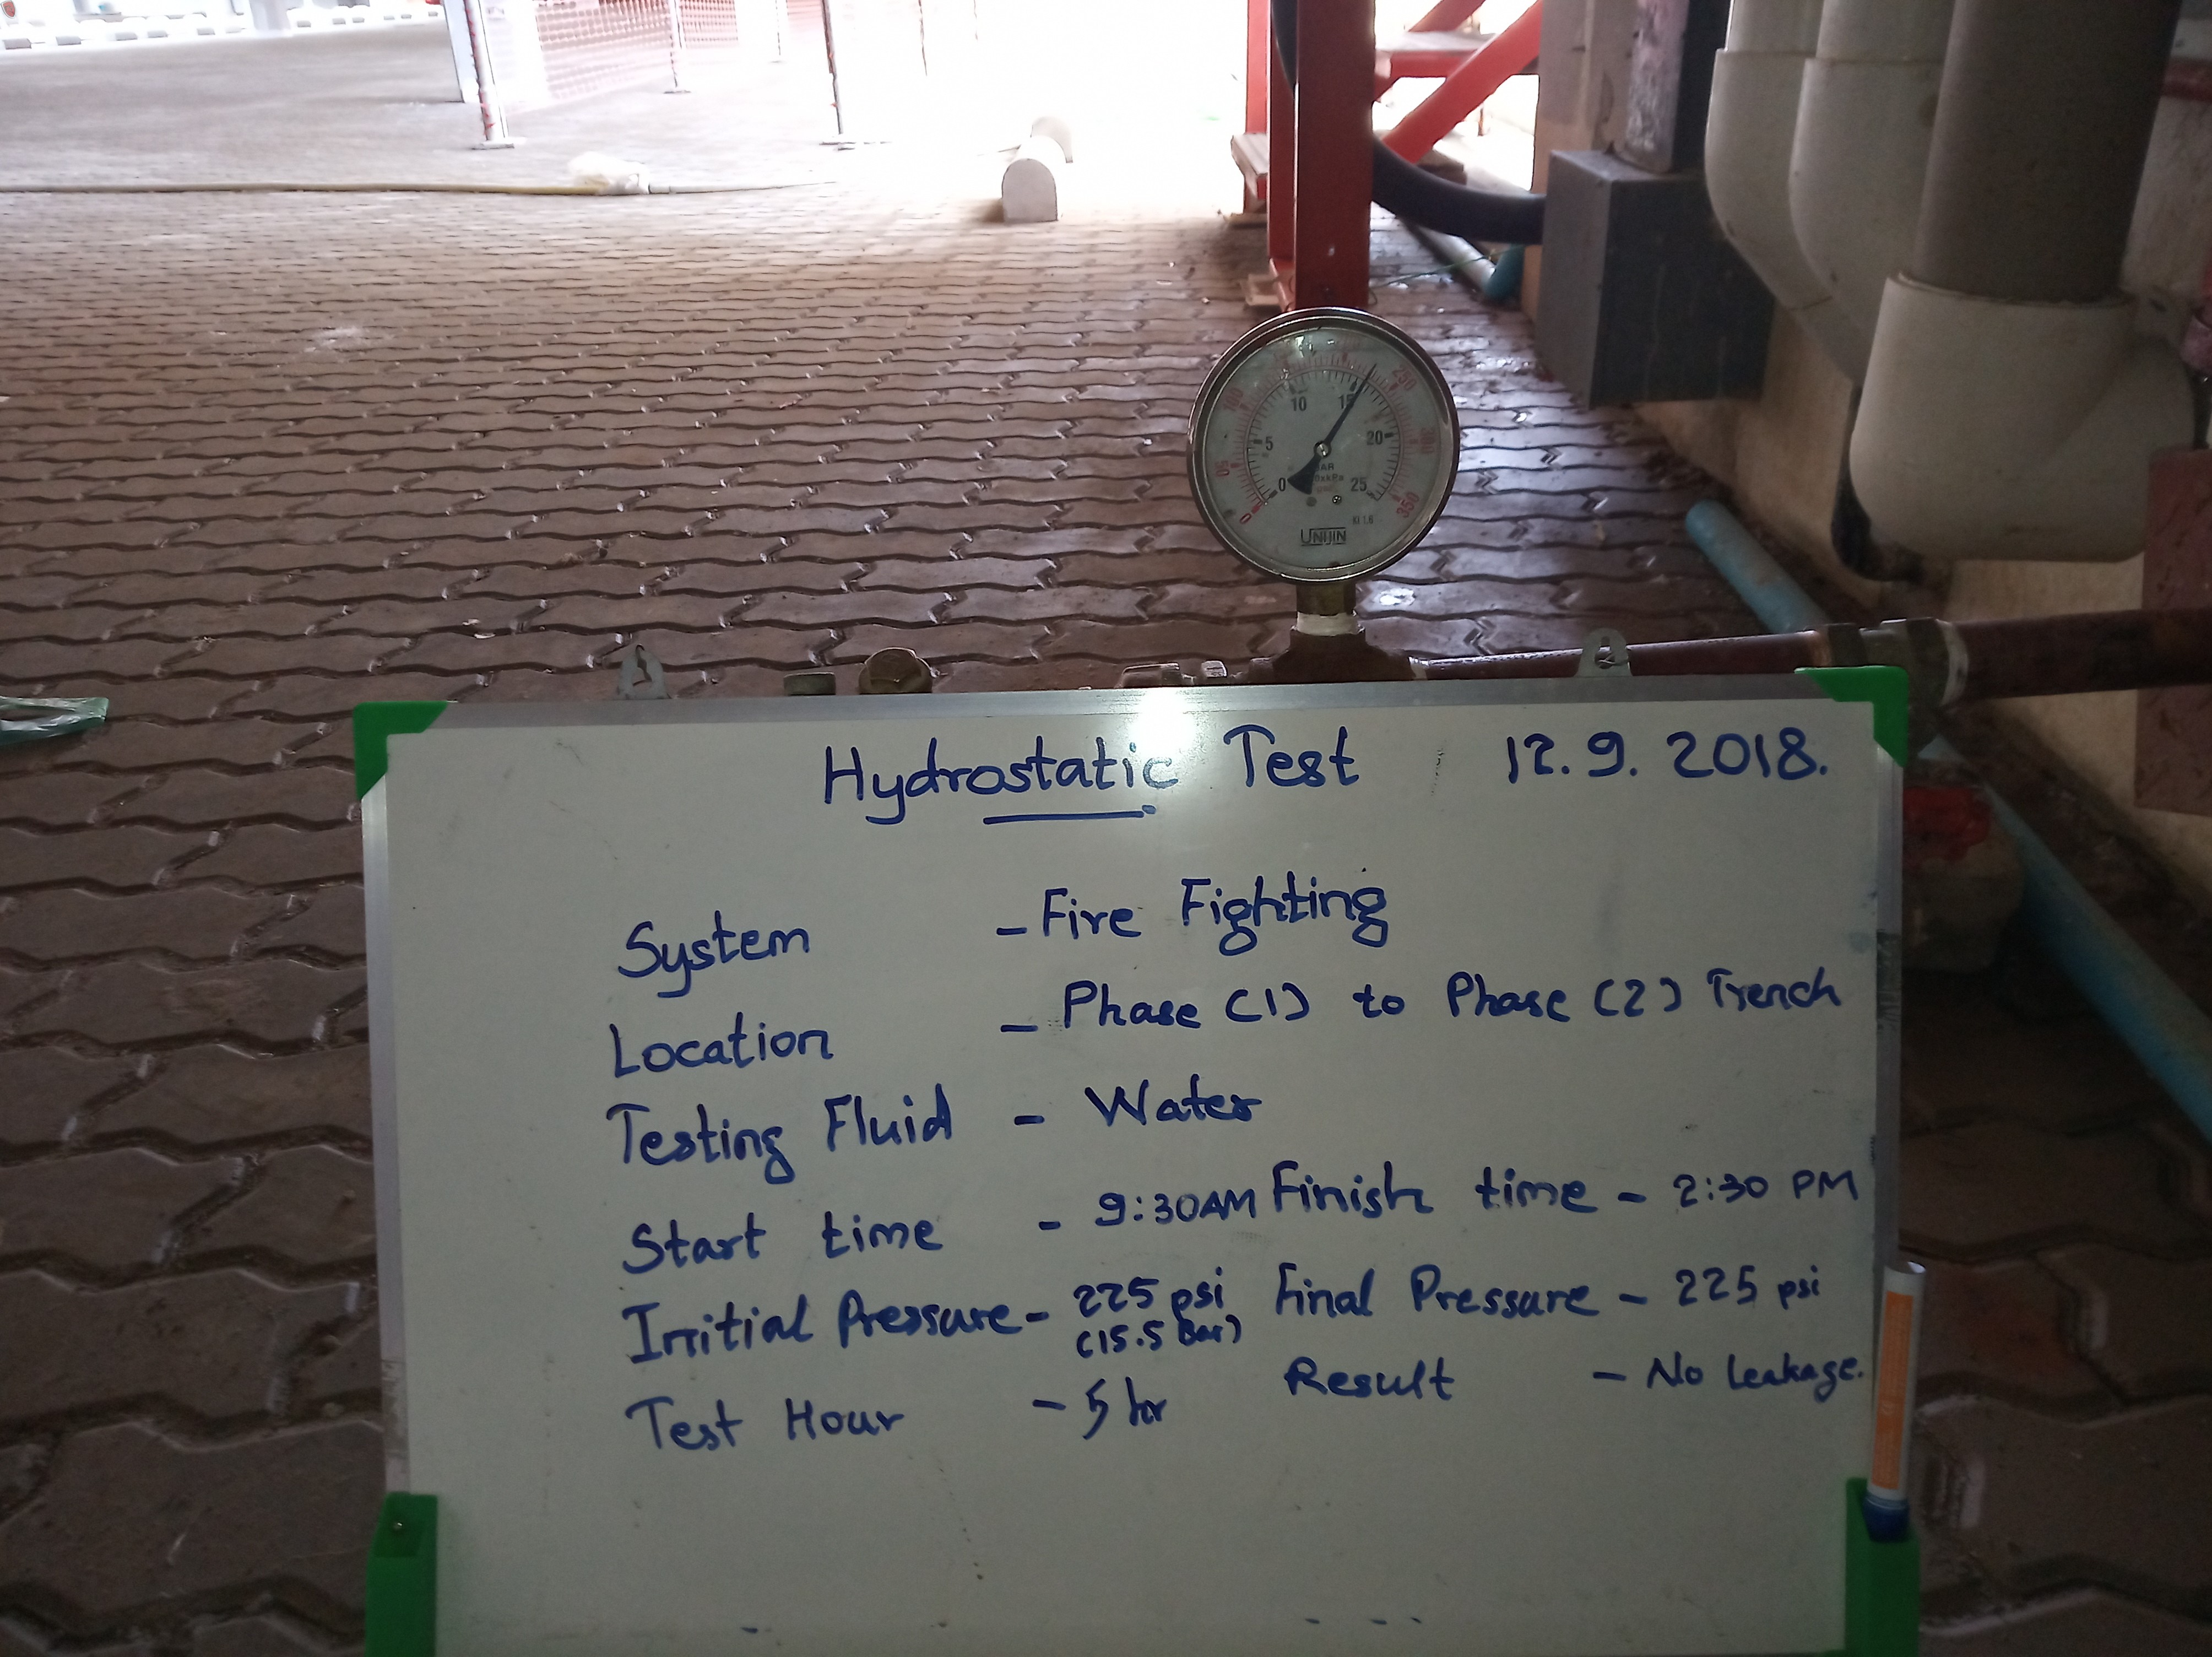 10
15
5
20
BAR
0
25
350
KI 1.6
UNIJIN
Hydrostatic Test 12.9.2018.
System - Fire Fighting
Location - Phase (1) to Phase (2) Trench
Testing Fluid - Water
Start time - 9:30AM Finish time - 2:30 PM
Initial Pressure - 225 psi Final Pressure - 225 psi
(15.5 Bar)
Test Hour - 5 hr Result - No leakage.